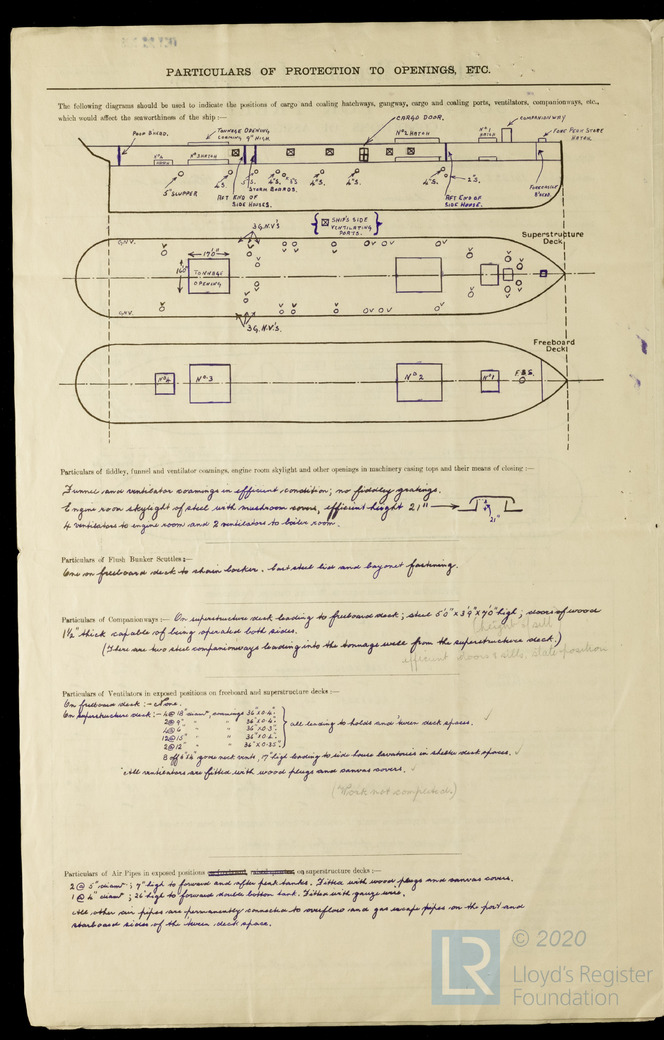 PARTICULARS OF PROTECTION TO OPENINGS, ETC.
The following diagrams should be used to indicate the positions of cargo and coaling hatchways, gangway, cargo and coaling ports, ventilators, companionways, etc.,
which would affect the seaworthiness of the ship :—
POOP B'HEAD.
TONNAGE OPENING
COAMING 9" HIGH.
CARGO DOOR.
COMPANIONWAY
Nº4
HATCH
Nº3 HATCH
Nº2 HATCH
Nº1
HATCH
FORE PEAK STORE
HATCH.
5" SCUPPER
4"S.
5"S.
4"S.
5"S
4"S.
4"S.
4"S.
2"S.
STORM BOARDS.
AFT END OF
SIDE HOUSES.
AFT END OF
SIDE HOUSE.
FORECASTLE
B'HEAD.
SHIP'S SIDE
VENTILATING
PORTS.
3 G.N.V'S
Superstructure
Deck
G.N.V.
17'0"
16'0"
TONNAGE
OPENING
G.N.V.
3 G.N.V'S.
Freeboard
Deck
Nº4
Nº3
Nº2
Nº1
F.B.S.
Particulars of fiddley, funnel and ventilator coamings, engine room skylight and other openings in machinery casing tops and their means of closing :—
Funnel and ventilator coamings in efficient condition; no fiddley gratings.
Engine room skylight of steel with mushroom covers, efficient height 21"
21"
4 ventilators to engine room and 2 ventilators to boiler room.
Particulars of Flush Bunker Scuttles :—
One on freeboard deck to chain locker. Cast steel lid and bayonet fastening.
Particulars of Companionways :— On superstructure deck leading to freeboard deck; steel 5'0" x 3'9" x 7'0" high; doors of wood
1½" thick capable of being operated both sides.
(height of sill
(There are two steel companionways leading into the tonnage well from the superstructure deck.)
efficient doors & sills. State position
Particulars of Ventilators in exposed positions on freeboard and superstructure decks :—
On freeboard deck :— None.
On superstructure deck :— 4@18" diamr, coamings 36" x 0.4"
2@9" " " 36" x 0.4"
4@6" " " 36" x 0.3"
12@15" " " 36" x 0.4"
2@12" " " 36" x 0.35"
all leading to holds and 'tween deck spaces.
8 off 6"x4" goose neck vents, 17" high leading to side house lavatories in shelter deck spaces.
All ventilators are fitted with wood plugs and canvas covers.
(Work not completed.)
Particulars of Air Pipes in exposed positions on superstructure decks :—
2 @ 5" diamr; 7" high to forward and after peak tanks. Fitted with wood plugs and canvas covers.
1 @ 4" diamr; 26" high to forward double bottom tank. Fitted with gauge wire.
All other air pipes are permanently connected to overflow and gas escape pipes on the port and
starboard sides of the tween deck space.
LR
© 2020
Lloyd's Register
Foundation